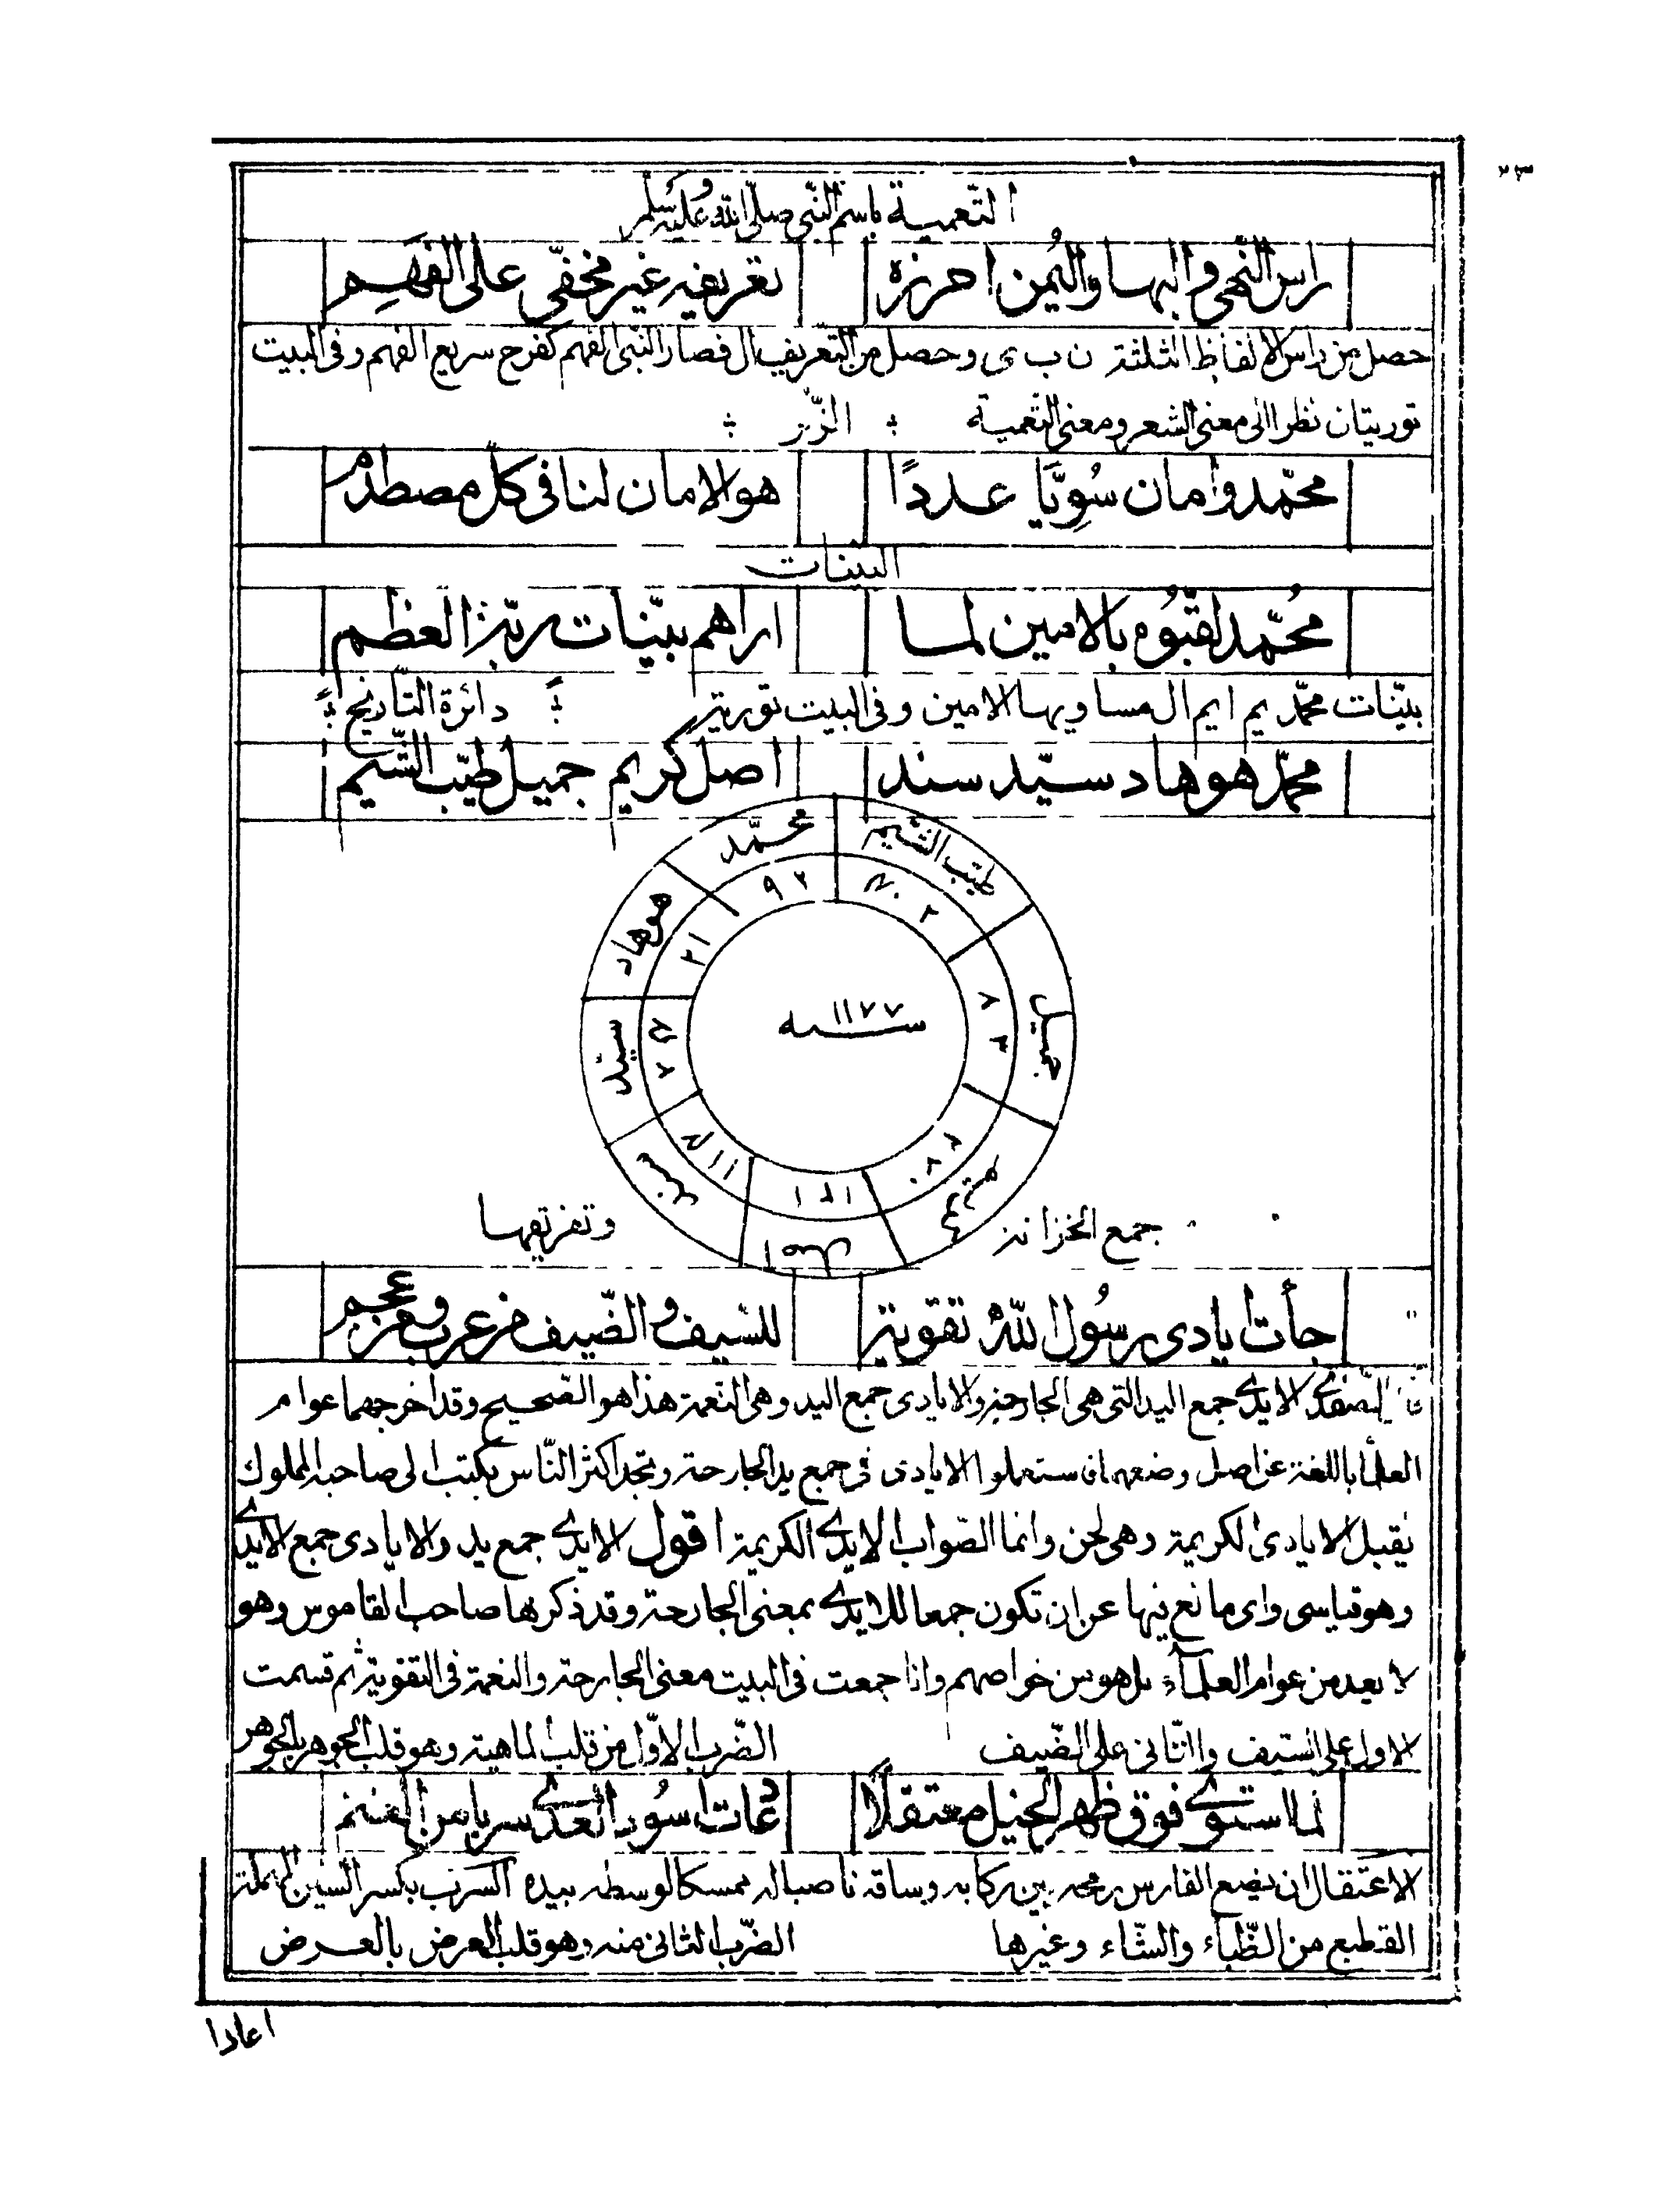 ٢٣
التّعمية باسم النّبى صلّى الله عليه وسلم
راس النّهى والبها واليُمن احرزه تعريفه غير مخفّى على الفَهِم
حصل من راس الالفاظ الثلثة ن ب ى وحصل من التّعريف ال فصار النّبى الفهم كفرح سريع الفهم وفى البيت
توريتان نظرا الى معنى الشعر ومعنى التّعمية الزّبر
محمّد وامان سُوِّيَا عددًا هو الامان لنا فى كلّ مصطدم
البيّنات
مُحمّد لقّبُوه بالامين لما اراهم بيّنات ربّه العظم
بيّنات محمّد يم ا يم ال مساويها الامين وفى البيت تورية دائرة التّاريخ
محمّد هو هاد سيّد سند اصل كريم جميل طيّب الشّيم
محمّد
٩٢
هو هاد
٢١
سيّد
٧٤
سند
١١٤
اصل
١٢١
كريم
٢٧٠
جميل
٨٣
طيّب الشّيم
سنه ١١٧٧
جمع الخزانة وتفريقها
جأت ايادى رسُول الله تقوية للسّيف والضّيف من عرب ومن عجم
قال الصّفدى الايدى جمع اليد التى هى الجارحة والايادى جمع اليد وهى النّعمة هذا هو الصّحيح وقد اخرجهما عوام
العلمأ باللغة عن اصل وضعهما فاستعملوا الايادى فى جمع يد الجارحة وتجد اكثر النّاس يكتب الى صاحبه المملوك
يقبل الايادى الكريمة وهى لحن وانما الصّواب الايدى الكريمة اقول الايدى جمع يد والايادى جمع الايدى
وهو قياسى واى مانع فيها عن ان تكون جمعا للايدى بمعنى الجارحة وقد ذكرها صاحب القاموس وهو
لا يعد من عوام العلمآء بل هو من خواصهم وانا جمعت فى البيت معنى الجارحة والنعمة فى التقوية ثم قسمت
الاول على السّيف والثّانى على الضّيف الضّرب الاوّل من قلب الماهية وهو قلب الجوهر بالجوهر
لما استوى فوق ظهر الخيل معتقلًا عات اسُود العدى سربا من الغنم
الاعتقال ان يضع الفارس رمحه بين ركابه وساقه ناصبا له ممسكا لوسطه بيده السّرب بكسر السّين المهملة
القطيع من الظّباء والشّاء وغيرها الضّرب الثانى منه وهو قلب العرض بالعرض
اعادا